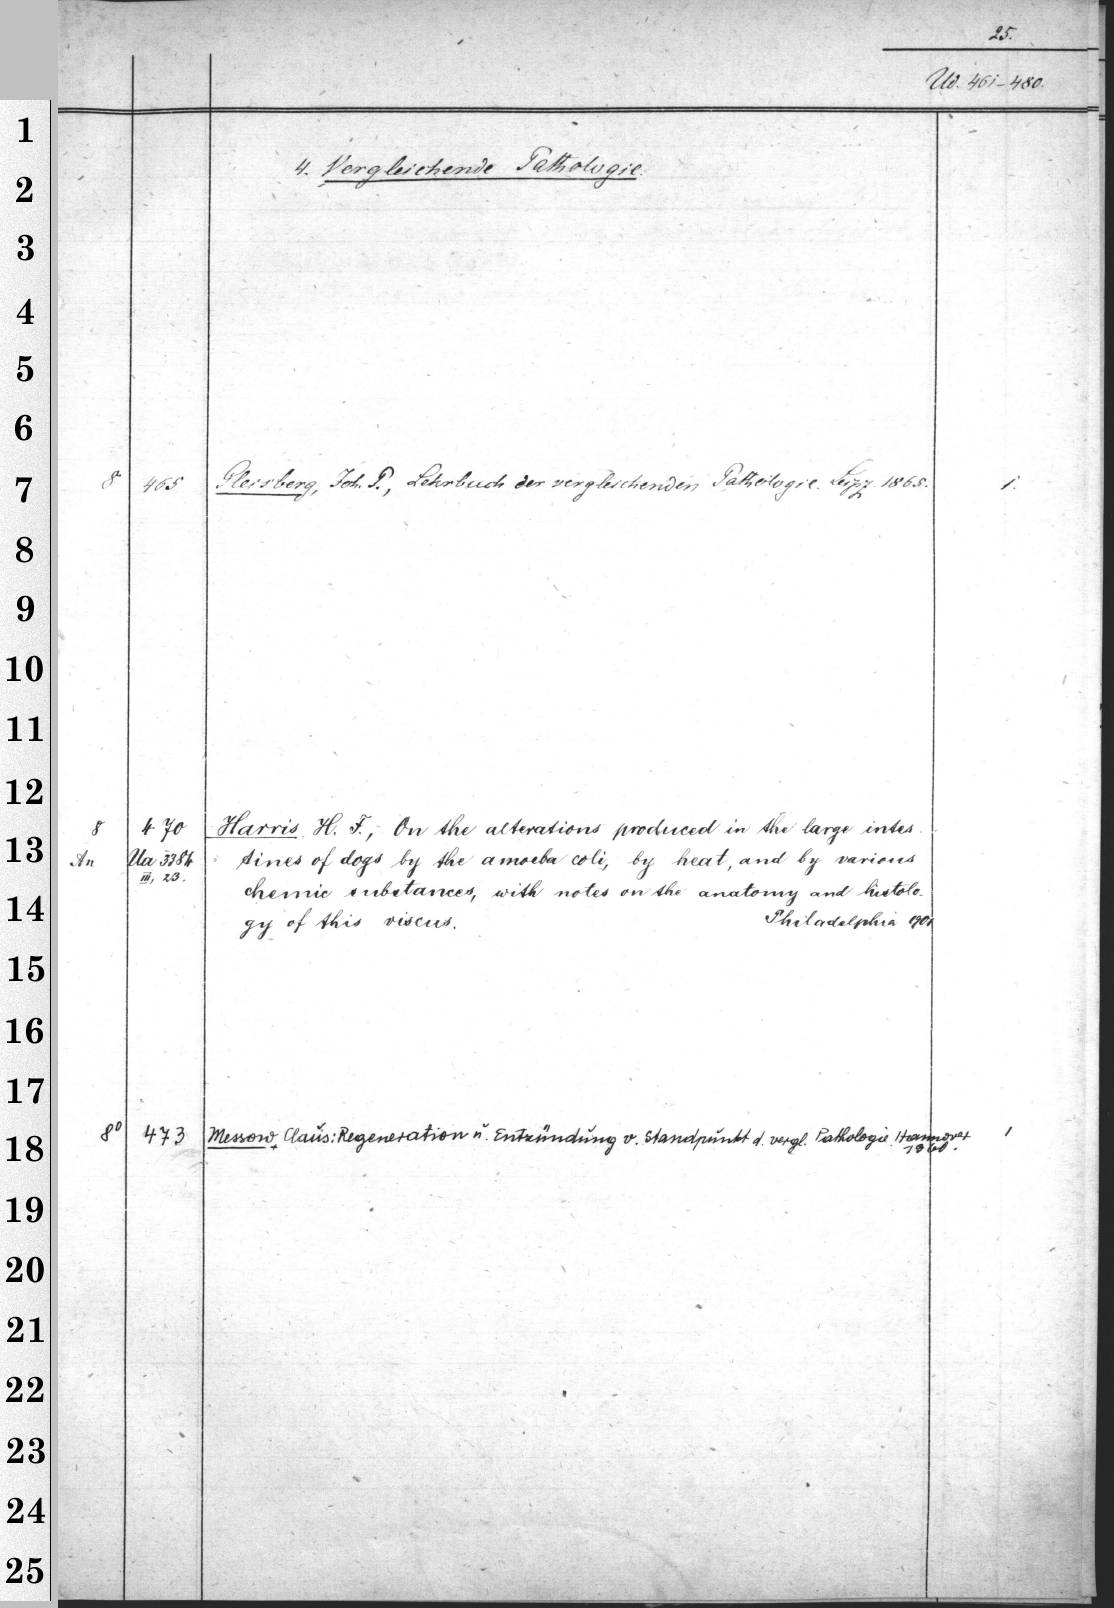 25.
Ud. 461-480.
1
2
3
4
5
6
7
8
9
10
11
12
13
14
15
16
17
18
19
20
21
22
23
24
25
4. Vergleichende Pathologie.
8 465 Gleisberg, Joh. P., Lehrbuch der vergleichenden Pathologie. Leipz. 1865. 1.
8 470 Harris, H. F., On the alterations produced in the large intes
An Ua 3384 tines of dogs by the amoeba coli, by heat, and by various
III, 23. chemic substances, with notes on the anatomy and histolo-
gy of this viscus. Philadelphia 1901
8⁰ 473 Messow, Claus: Regeneration u. Entzündung v. Standpunkt d. vergl. Pathologie. Hannover 1